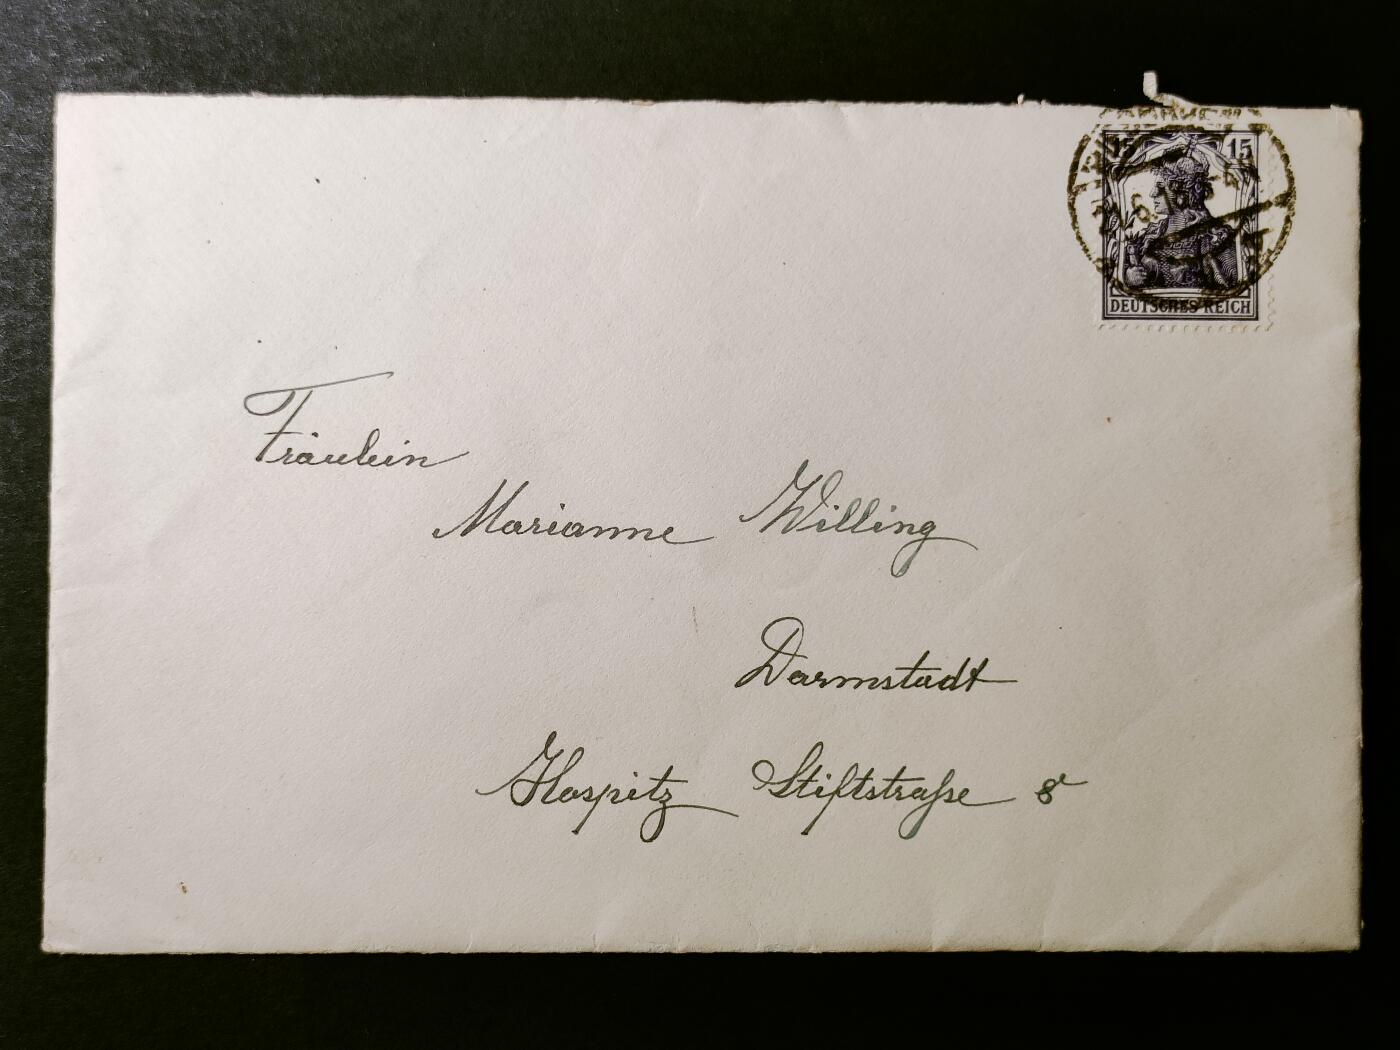 15 15
DEUTSCHES REICH
Fräulein
Marianne Willing
Darmstadt
Hospitz Stiftstraße 8